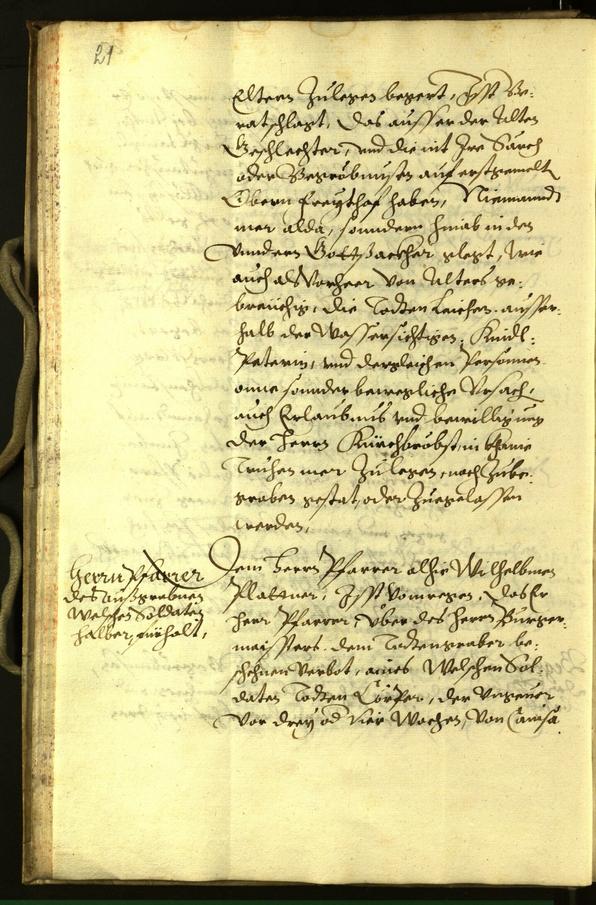 21
Eltern Zulegen begert, Ist Be-
ratschlagt, das ausser der Alten
Geschlechter, und die mit Ire Särch
oder Begröbnussen auf erstgemelt
Obern freythof haben, Niemannd
mer alda, sonndern hinab in den
Unndern Gottsackher glegt, wie
auch als Vorheer von Alters ge-
breuchig, die Todten Leichen, ausser-
halb der Wassersichtigen, Kindl-
Peterin, und dergleichen Personnen
onne sonnder bewegliche Ursach,
auch Erlaubnus und bewilligung
der Herrn Kürchbröbst, in khaine
Truhen mer Zulegen, noch Zube-
graben gestat, oder Zuegelassen
werden,
Herrn Pfarrer
des außgrabnen
Welschen Soldaten
halber fürhalt,
Dem Herrn Pfarrer alhie Wilhelbmen
Plattner, Ist Vomwegen, das Er
Herr Pfarrer, über des Herrn Burger-
maisters dem Todtengraber be-
schehnen verbot, aines Welschen Sol-
daten Todten Cörper, der Ungeuer
vor drey od vier Wochen, von Canisa